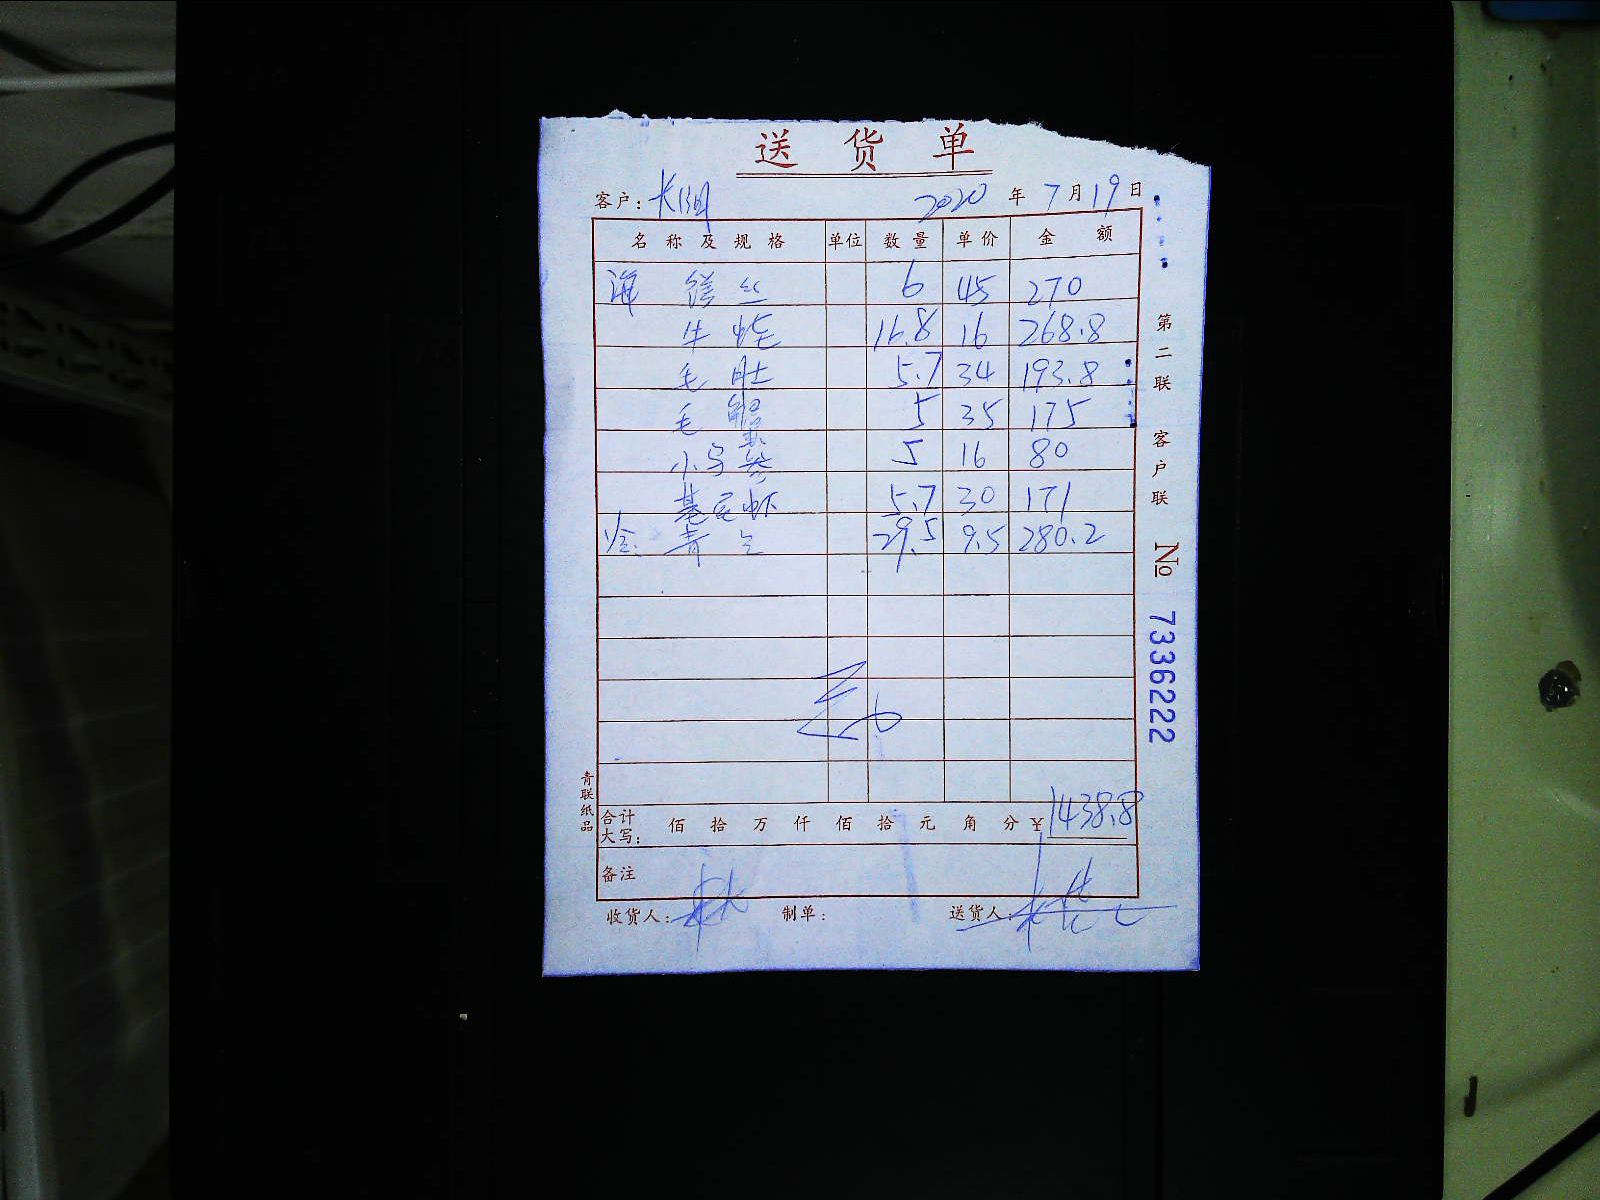 送货单
客户: 长阳 2020 年 7 月 19 日
名称及规格 单位 数量 单价 金额
海 丝 6 45 270
牛蛙 16.8 16 268.8
毛肚 5.7 34 193.8
毛蟹 5 35 175
小乌参 5 16 80
基尾虾 5.7 30 171
青 29.5 9.5 280.2
合计大写: 佰 拾 万 仟 佰 拾 元 角 分 ¥ 1438.8
备注
收货人: 制单: 送货人:
第二联 客户联 № 7336222
青联纸品